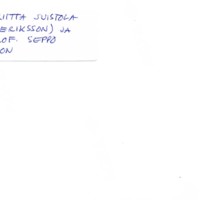 IITTA SUISTOLA
ERIKSSON) JA
OF. SEPPO
ON